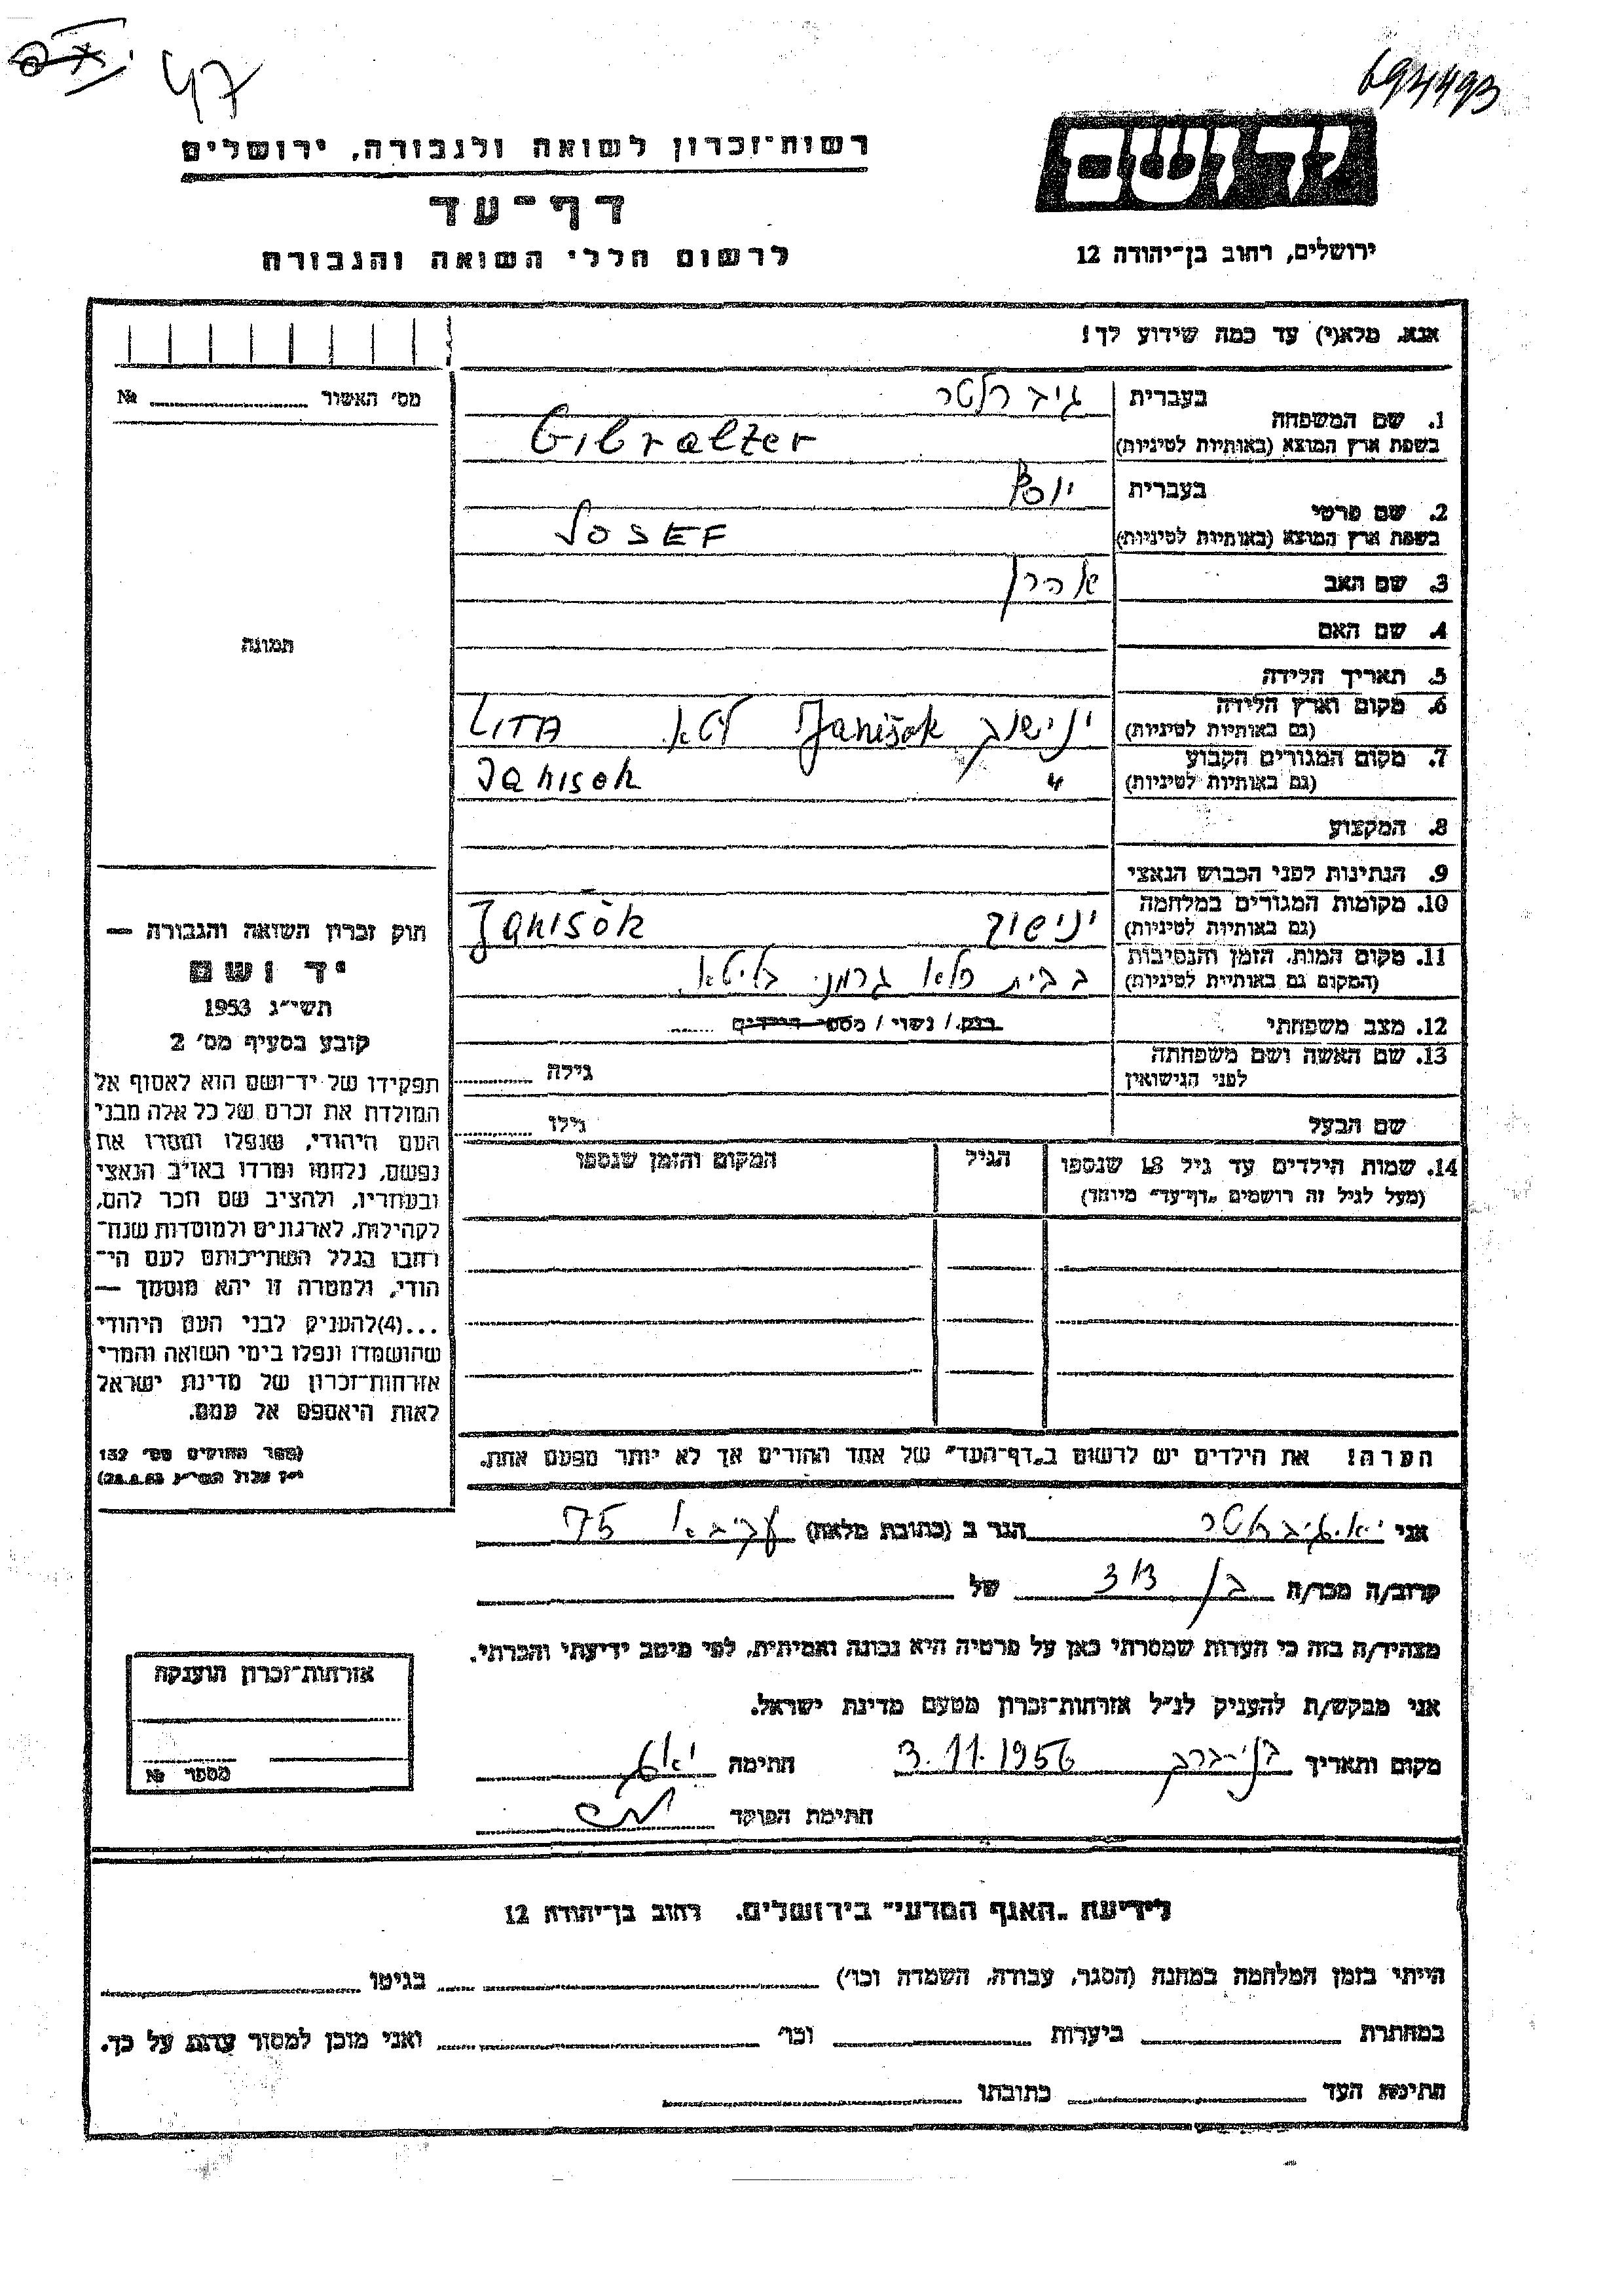 47
רשות־זכרון לשואה ולגבורה, ירושלים
דף־עד
לרשום חללי השואה והגבורה
יד ושם
ירושלים, רחוב בן־יהודה 12
אנא, מלא(י) עד כמה שידוע לך!
מס' האשור №
1. שם המשפחה
בעברית גיברלטר
בשפת ארץ המוצא (באותיות לטיניות) Gibralter
2. שם פרטי
בעברית יוסף
בשפת ארץ המוצא (באותיות לטיניות) JOSEF
3. שם האב אהרן
4. שם האם
5. תאריך הלידה
6. מקום וארץ הלידה ינישוק Janišok ליטא LITA
(גם באותיות לטיניות)
7. מקום המגורים הקבוע " Janisok
(גם באותיות לטיניות)
8. המקצוע
9. הנתינות לפני הכבוש הנאצי
10. מקומות המגורים במלחמה ינישוק Janisok
(גם באותיות לטיניות)
11. מקום המות, הזמן והנסיבות בבית כלא גרמני בליטא.
(המקום גם באותיית לטיניות)
12. מצב משפחתי רוק / נשוי / מספר הילדים
13. שם האשה ושם משפחתה גילה
לפני הנישואין
שם הבעל גילו
14. שמות הילדים עד גיל 18 שנספו הגיל המקום והזמן שנספו
(מעל לגיל זה רושמים „דף־עד" מיוחד)
הערה! את הילדים יש לרשום ב„דף־העד" של אחד ההורים אך לא יותר מפעם אחת.
תמונה
חוק זכרון השואה והגבורה —
יד ושם
תשי"ג 1953
קובע בסעיף מס' 2
תפקידו של יד־ושם הוא לאסוף אל
המולדת את זכרם של כל אלה מבני
העם היהודי, שנפלו ומסרו את
נפשם, נלחמו ומרדו באויב הנאצי
ובעוזריו, ולהציב שם וזכר להם,
לקהילות, לארגונים ולמוסדות שנח־
רבו בגלל השתייכותם לעם הי־
הודי, ולמטרה זו יהא מוסמך —
...(4)להעניק לבני העם היהודי
שהושמדו ונפלו בימי השואה והמרי
אזרחות־זכרון של מדינת ישראל
לאות היאספם אל עמם.
(ספר החוקים מס' 132
י"ז אלול תשי"ג 28.8.53)
אני הגר ב (כתובת מלאה) עקיבא 75
קרוב/ה מכר/ה בן דוד של
מצהיר/ה בזה כי העדות שמסרתי כאן על פרטיה היא נכונה ואמיתית, לפי מיטב ידיעתי והכרתי.
אני מבקש/ת להעניק לנ"ל אזרחות־זכרון מטעם מדינת ישראל.
מקום ותאריך בני-ברק 3.11.1956 חתימה
חתימת הפוקד
אזרחות־זכרון הוענקה
מספר №
לידיעת „האגף המדעי" בירושלים, רחוב בן־יהודה 12
הייתי בזמן המלחמה במחנה (הסגר, עבודה, השמדה וכו') בגיטו
במחתרת ביערות וכו' ואני מוכן למסור עדות על כך.
חתימת העד כתובתו